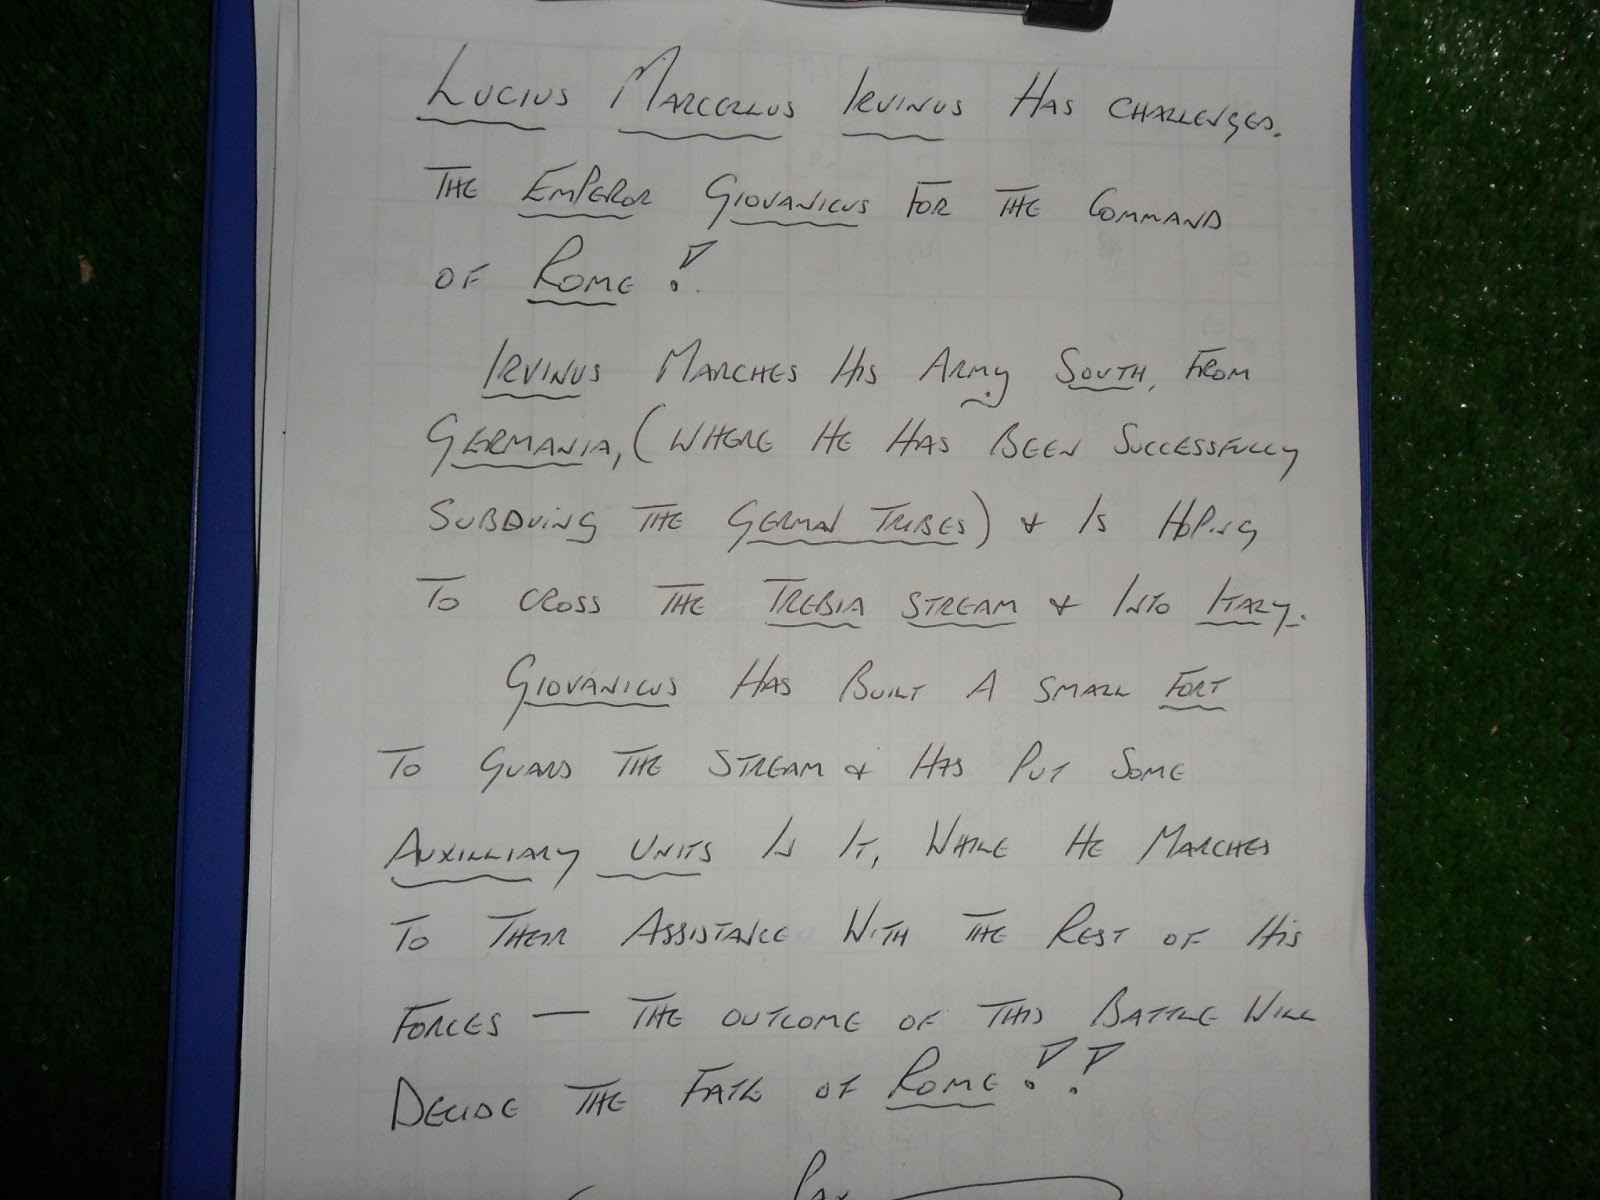 LUCIUS MARCELLUS IRVINUS HAS CHALLENGED.
THE EMPEROR GIOVANICUS FOR THE COMMAND
OF ROME!
IRVINUS MARCHES HIS ARMY SOUTH, FROM
GERMANIA, (WHERE HE HAS BEEN SUCCESSFULLY
SUBDUING THE GERMAN TRIBES) & IS HOPING
TO CROSS THE TREBIA STREAM & INTO ITALY.
GIOVANICUS HAS BUILT A SMALL FORT
TO GUARD THE STREAM & HAS PUT SOME
AUXILLIARY UNITS IN IT, WHILE HE MARCHES
TO THEIR ASSISTANCE WITH THE REST OF HIS
FORCES — THE OUTCOME OF THIS BATTLE WILL
DECIDE THE FATE OF ROME!!